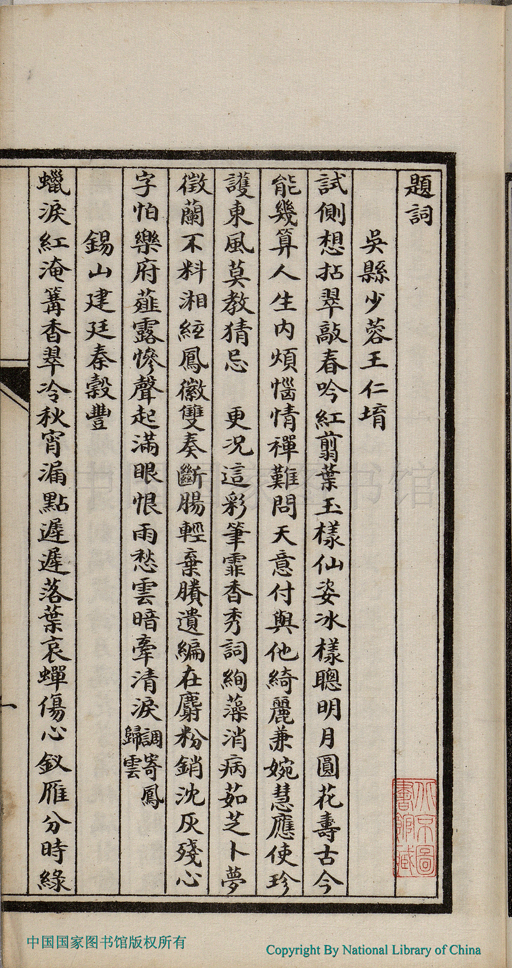 題詞
吳縣少蓉王仁堉
試側想拈翠敲春吟紅翦葉玉樣仙姿冰樣聰明月圓花壽古今
能幾算人生內煩惱情禪難問天意付與他綺麗兼婉慧應使珍
護東風莫教猜忌　更況這彩筆霏香秀詞絢藻消病茹芝卜夢
徵蘭不料湘絃鳳徽雙奏斷腸輕棄賸遺編在麝粉銷沈灰殘心
字怕樂府薤露慘聲起滿眼恨雨愁雲暗牽清淚調寄鳳歸雲
錫山建廷秦穀豐
蠟淚紅淹篝香翠冷秋宵漏點遲遲落葉哀蟬傷心釵雁分時緣
北京圖書館藏
中国国家图书馆版权所有
Copyright By National Library of China